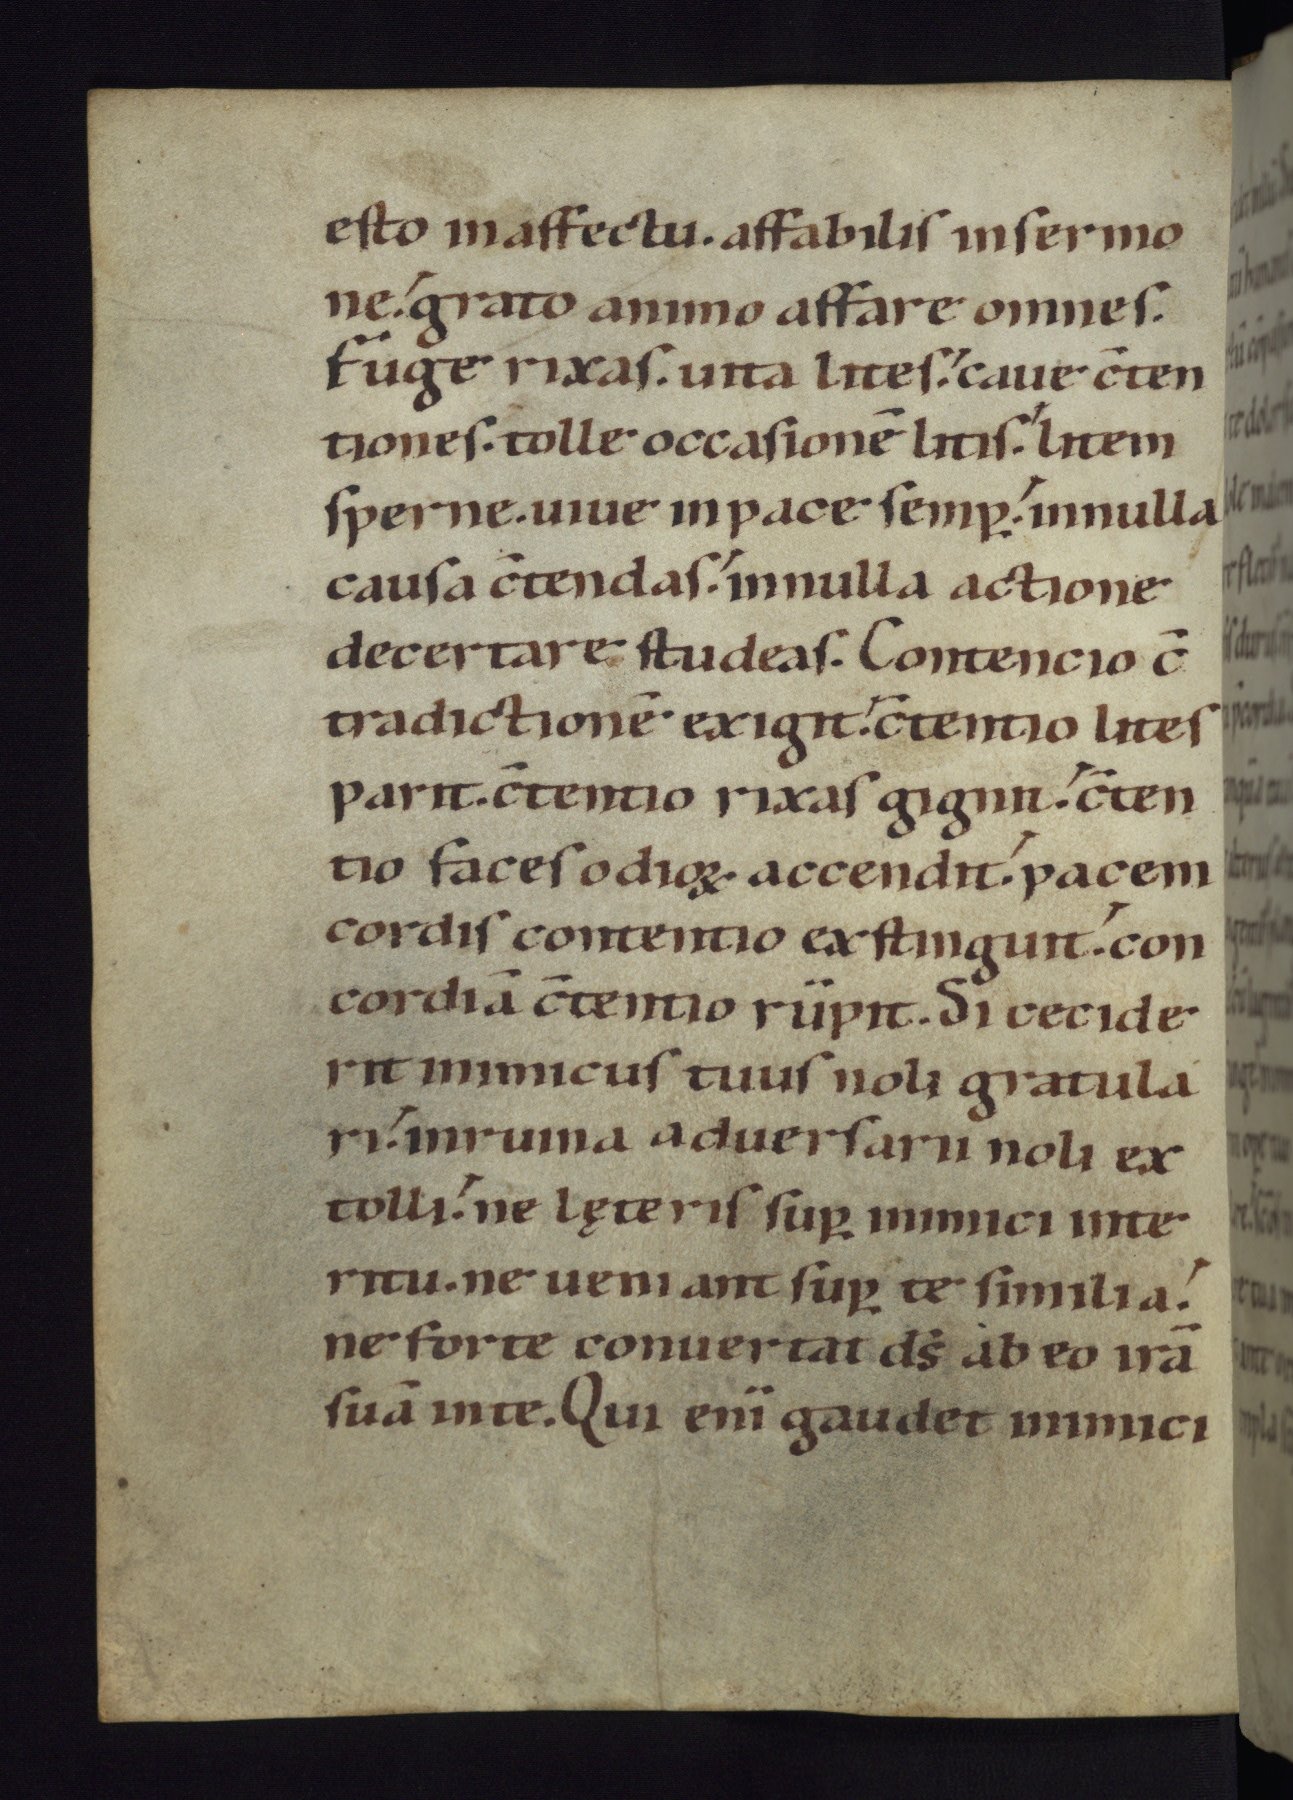 esto in affectu. affabilis in sermo
ne.' grato animo affare omnes.
fuge rixas. uita lites.' caue c̄ten
tiones. tolle occasionē litis.' litem
sperne. uiue in pace semꝑ.' in nulla
causa c̄tendas.' in nulla actione
decertare studeas. Contencio c̄
tradictionē exigit.' c̄tentio lites
parit. c̄tentio rixas gignit.' c̄ten
tio faces odioꝝ accendit.' pacem
cordis contentio exstinguit.' con
cordiā c̄tentio rūpit. Si cecide
rit inimicus tuus noli gratula
ri.' in ruina aduersarii noli ex
tolli.' ne lęteris suꝑ inimici inte
ritu. ne ueniant suꝑ te similia.'
ne forte conuertat ds̄ ab eo irā
suā in te. Qui enī gaudet inimici